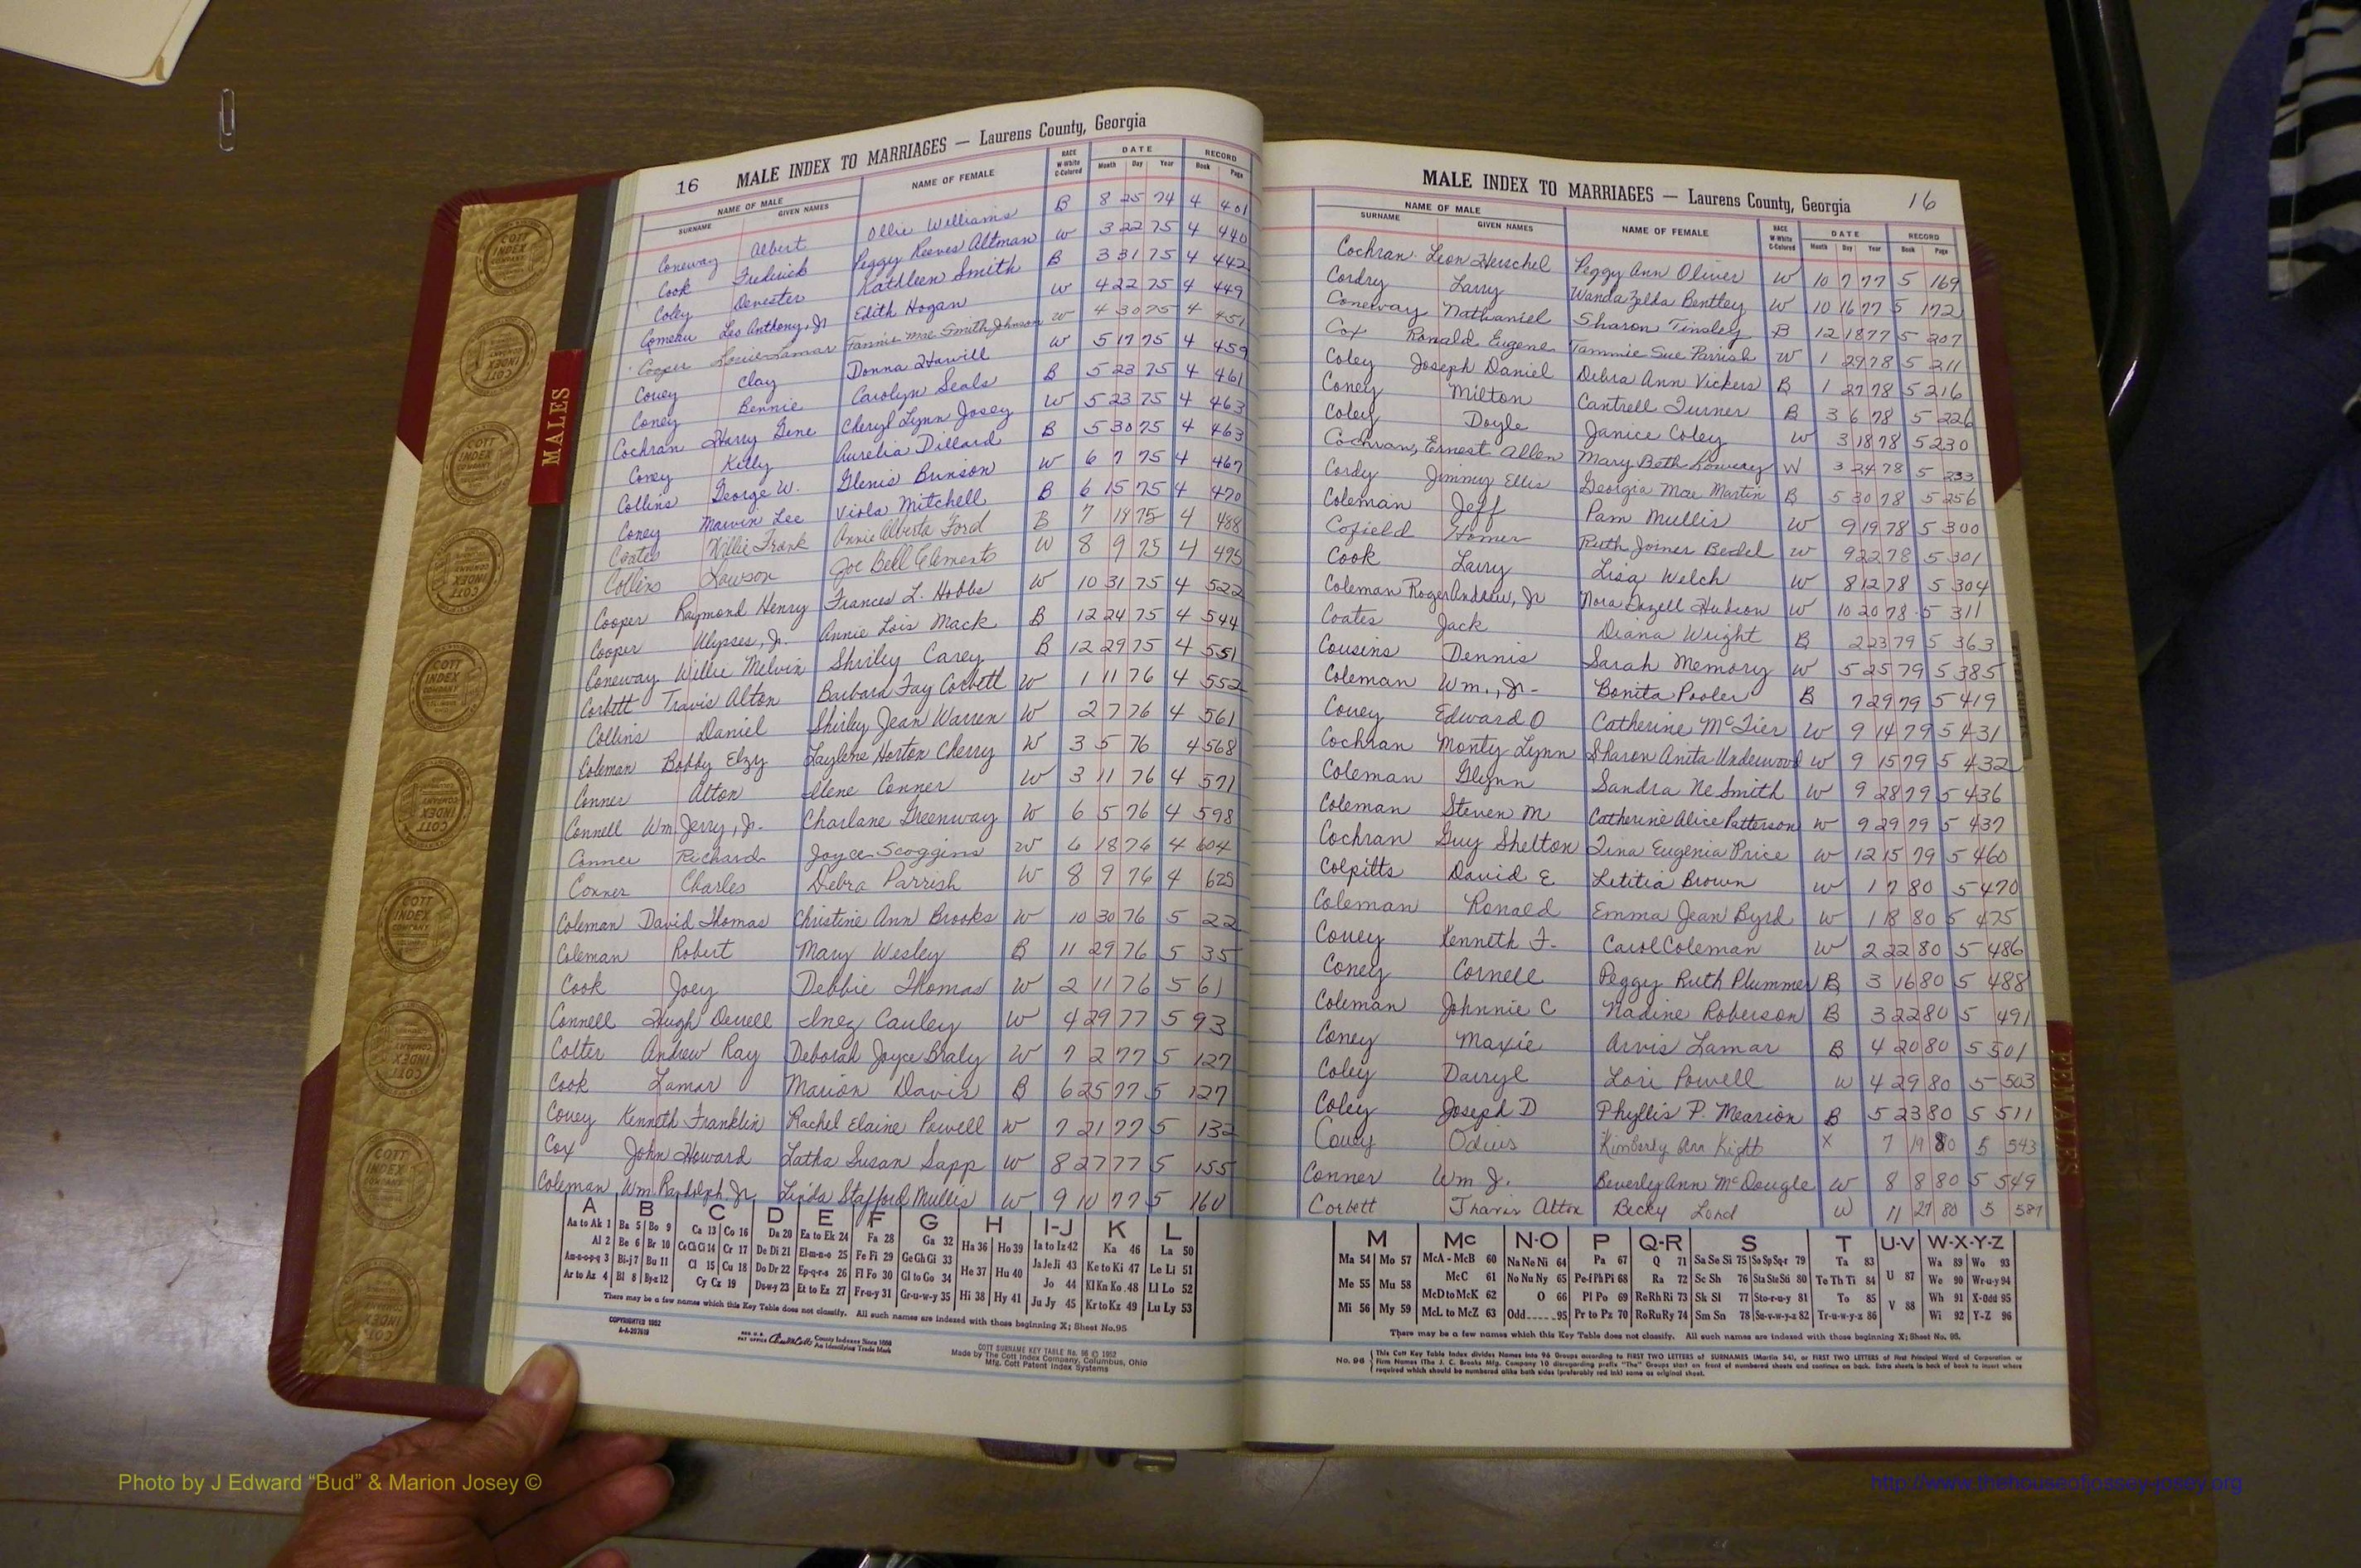 16 MALE INDEX TO MARRIAGES — Laurens County, Georgia
NAME OF MALE NAME OF FEMALE RACE W-White C-Colored DATE RECORD
SURNAME GIVEN NAMES Month Day Year Book Page
Coneway Albert Ollie Williams B 8 25 74 4 401
Cook Frederick Peggy Reeves Altman W 3 22 75 4 440
Coley Devester Kathleen Smith B 3 31 75 4 442
Comeau Leo Anthony, Jr Edith Hogan W 4 22 75 4 449
Cooper Louie Lamar Fannie Mae Smith Johnson W 4 30 75 4 451
Couey Clay Donna Harvill W 5 17 75 4 459
Coney Bennie Carolyn Seals B 5 23 75 4 461
Cochran Harry Gene Cheryl Lynn Josey W 5 23 75 4 463
Coney Kelly Aurelia Dillard B 5 30 75 4 463
Collins George W. Glenis Brinson W 6 7 75 4 467
Coney Marvin Lee Viola Mitchell B 6 15 75 4 470
Coates Willie Frank Annie Alberta Ford B 7 19 75 4 488
Collins Lawson Joe Bell Clements W 8 9 75 4 495
Cooper Raymond Henry Frances L. Hobbs W 10 31 75 4 522
Cooper Ulysses, Jr. Annie Lois Mack B 12 24 75 4 544
Coneway Willie Melvin Shirley Carey B 12 29 75 4 551
Corbitt Travis Alton Barbara Fay Corbett W 1 11 76 4 552
Collins Daniel Shirley Jean Warren W 2 7 76 4 561
Coleman Bobby Elzy Laylene Horton Cherry W 3 5 76 4 568
Conner Alton Ilene Conner W 3 11 76 4 571
Connell Wm. Jerry, Jr. Charlane Greenway W 6 5 76 4 598
Conner Richard Joyce Scoggins W 6 18 76 4 604
Conner Charles Debra Parrish W 8 9 76 4 625
Coleman David Thomas Christine Ann Brooks W 10 30 76 5 22
Coleman Robert Mary Wesley B 11 29 76 5 35
Cook Joey Debbie Thomas W 2 11 76 5 61
Connell Hugh Derrell Inez Cauley W 4 29 77 5 93
Colter Andrew Ray Deborah Joyce Braly W 7 2 77 5 127
Cook Lamar Marion Davis B 6 25 77 5 127
Couey Kenneth Franklin Rachel Elaine Powell W 7 21 77 5 132
Cox John Howard Latha Susan Sapp W 8 27 77 5 155
Coleman Wm. Randolph, Jr. Linda Stafford Mullis W 9 10 77 5 160
A B C D E F G H I-J K L
Aa to Ak 1 Ba 5 Bo 9 Ca 13 Co 16 Da 20 Ea to Ek 24 Fa 28 Ga 32 Ha 36 Ho 39 Ia to Iz 42 Ka 46 La 50
Al 2 Be 6 Br 10 Ce Ch Ci 14 Cr 17 De Di 21 El-m-n-o 25 Fe Fi 29 Ge Gh Gi 33 He 37 Hu 40 Ja Je Ji 43 Ke to Ki 47 Le Li 51
An-o-p-q 3 Bi-j 7 Bu 11 Cl 15 Cu 18 Do Dr 22 Ep-q-r-s 26 Fl Fo 30 Gl to Go 34 Hi 38 Hy 41 Jo 44 Kl Kn Ko 48 Ll Lo 52
Ar to Az 4 Bl 8 By-z 12 Cy Cz 19 Du-w-y 23 Et to Ez 27 Fr-u-y 31 Gr-u-w-y 35 Ju Jy 45 Kr to Kz 49 Lu Ly 53
There may be a few names which this Key Table does not classify. All such names are indexed with those beginning X; Sheet No. 95
COPYRIGHTED 1952
A-A-207619
County Indexes Since 1888
An Identifying Trade Mark
COTT SURNAME KEY TABLE No. 96 © 1952
Made by The Cott Index Company, Columbus, Ohio
Mfg. Cott Patent Index Systems
MALE INDEX TO MARRIAGES — Laurens County, Georgia 16
NAME OF MALE NAME OF FEMALE RACE W-White C-Colored DATE RECORD
SURNAME GIVEN NAMES Month Day Year Book Page
Cochran Leon Herschel Peggy Ann Oliver W 10 7 77 5 169
Cordry Larry Wanda Zelda Bentley W 10 16 77 5 172
Coneway Nathaniel Sharon Tinsley B 12 18 77 5 207
Cox Ronald Eugene Tammie Sue Parrish W 1 29 78 5 211
Coley Joseph Daniel Debra Ann Vickers B 1 27 78 5 216
Coney Milton Cantrell Turner B 3 6 78 5 226
Coley Doyle Janice Coley W 3 18 78 5 230
Cochran, Ernest Allen Mary Beth Lowery W 3 24 78 5 233
Cordy Jimmy Ellis Georgia Mae Martin B 5 30 78 5 256
Coleman Jeff Pam Mullis W 9 19 78 5 300
Cofield Homer Ruth Joiner Bedel W 9 22 78 5 301
Cook Larry Lisa Welch W 8 12 78 5 304
Coleman Roger Andrew, Jr Nora Dozell Hudson W 10 20 78 5 311
Coates Jack Diana Wright B 2 23 79 5 363
Cousins Dennis Sarah Memory W 5 25 79 5 385
Coleman Wm., Jr. Bonita Pooler B 7 29 79 5 419
Couey Edward O Catherine McTier W 9 14 79 5 431
Cochran Monty Lynn Sharon Anita Underwood W 9 15 79 5 432
Coleman Glynn Sandra NeSmith W 9 28 79 5 436
Coleman Steven M Catherine Alice Patterson W 9 29 79 5 437
Cochran Guy Shelton Tina Eugenia Price W 12 15 79 5 460
Colpitts David E Letitia Brown W 1 7 80 5 470
Coleman Ronald Emma Jean Byrd W 1 18 80 5 475
Couey Kenneth F. Carol Coleman W 2 22 80 5 486
Coney Cornell Peggy Ruth Plummer B 3 16 80 5 488
Coleman Johnnie C Nadine Roberson B 3 22 80 5 491
Coney Maxie Arvis Lamar B 4 20 80 5 501
Coley Darryl Lori Powell W 4 29 80 5 503
Coley Joseph D Phyllis P. Mearion B 5 23 80 5 511
Couey Odius Kimberly Ann Kight X 7 19 80 5 543
Conner Wm J. Beverley Ann McDougle W 8 8 80 5 549
Corbett Travis Alton Becky Lord W 11 27 80 5 587
M Mc N-O P Q-R S T U-V W-X-Y-Z
Ma 54 Mo 57 McA - McB 60 Na Ne Ni 64 Pa 67 Q 71 Sa Se Si 75 So Sp Sq-r 79 Ta 83 U 87 Wa 89 Wo 93
Me 55 Mu 58 McC 61 No Nu Ny 65 Pe-f Ph Pi 68 Ra 72 Sc Sh 76 Sta Ste Sti 80 Te Th Ti 84 V 88 We 90 Wr-u-y 94
Mi 56 My 59 McD to McK 62 O 66 Pl Po 69 Re Rh Ri 73 Sk Sl 77 Sto-r-u-y 81 To 85 Wh 91 X-Odd 95
McL to McZ 63 Odd 95 Pr to Pz 70 Ro Ru Ry 74 Sm Sn 78 Su-v-w-y-z 82 Tr-u-w-y-z 86 Wi 92 Y-Z 96
There may be a few names which this Key Table does not classify. All such names are indexed with those beginning X; Sheet No. 95.
No. 96 This Cott Key Table Index divides Names into 96 Groups according to FIRST TWO LETTERS of SURNAMES (Martin 54), or FIRST TWO LETTERS of First Principal Word of Corporation or
Firm Names (The J. C. Brooks Mfg. Company 10 disregarding prefix "The") Groups start on front of numbered sheets and continue on back. Extra sheets in back of book to insert where
required which should be numbered alike both sides (preferably red ink) same as original sheet.
MALES
FEMALES
COTT INDEX COMPANY
Photo by J Edward “Bud” & Marion Josey ©
http://www.thehouseofjossey-josey.org